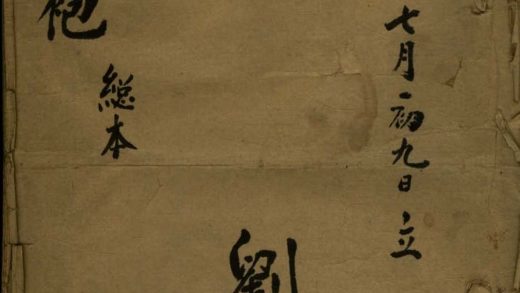 七月初九日立
劉
袍
総本